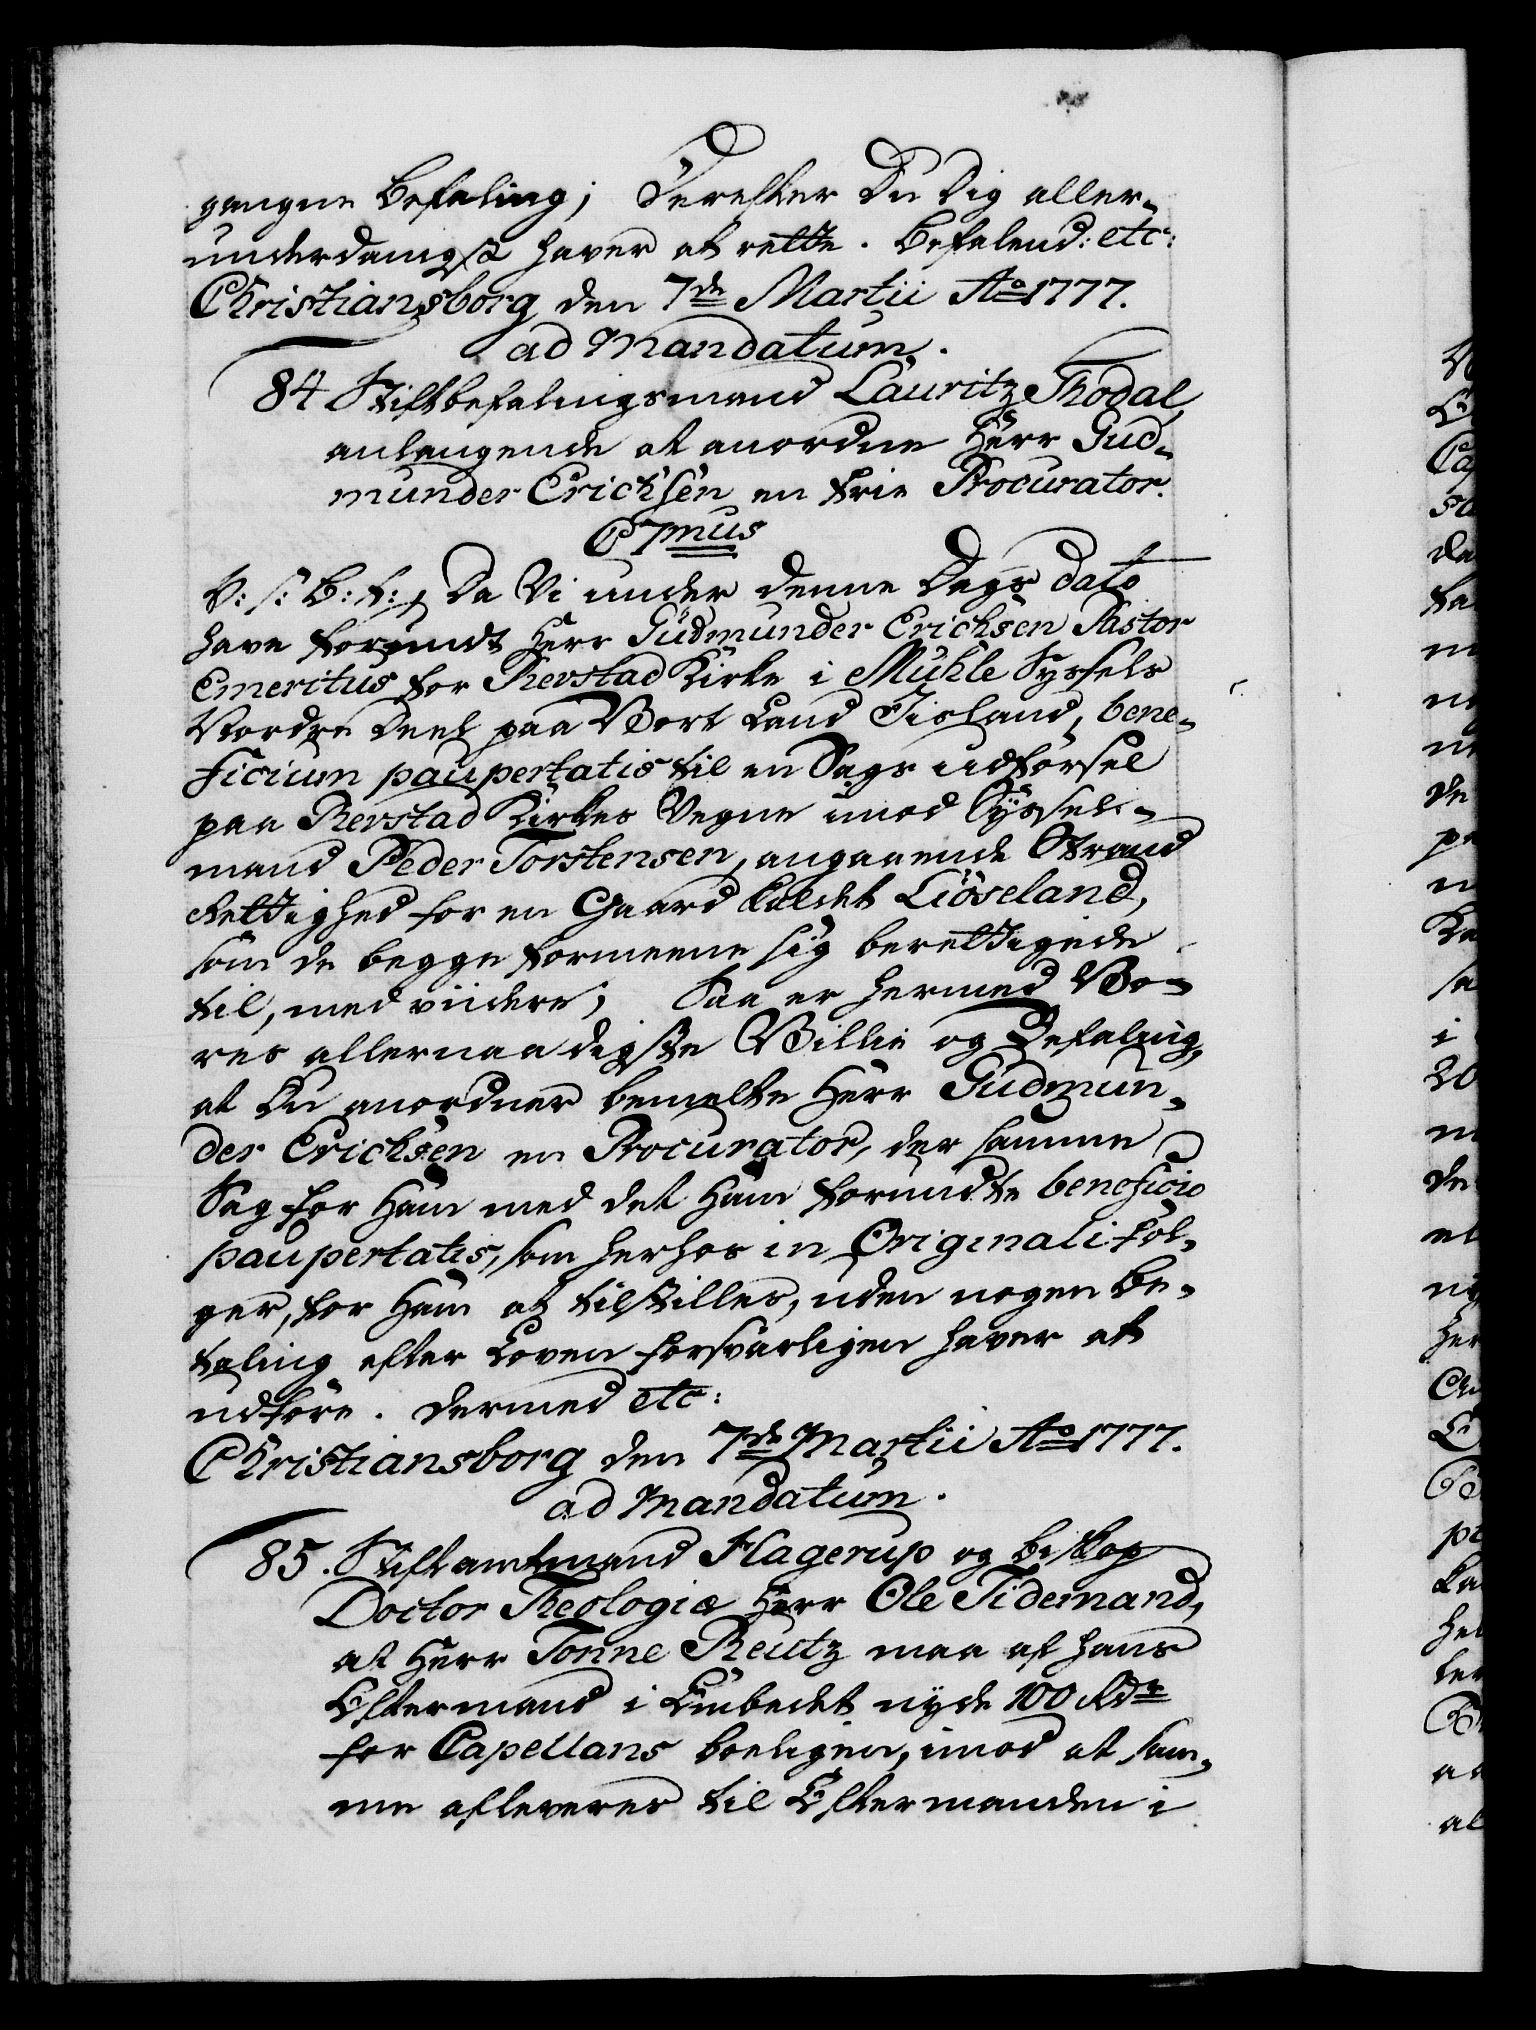 gangne Befaling; Derefter Du Dig aller-
underdanigst haver at rette. Befalend: etc:
Christiansborg den 7de Martii Ao 1777.
ad Mandatum.
84 Stiftbefalingsmand Lauritz Thodal,
anlangende at anordne Herr Gud-
munder Erichsen en frie Procurator.
C 7mus
V: s: B: t:, Da Vi under denne Dags dato
have forundt Herr Gudmunder Erichsen Pastor
Emeritus for Refstad Kirke i Muhle Syssels
Nordre Deel paa Vort Land Iisland, bene-
ficium paupertatis til en Sags udførsel
paa Refstad Kirkes Vegne imod Syssel-
mand Peder Torstensen, angaaende Strand
Rettighed for en Gaard kaldet Liöseland,
som de begge formeene sig berettigede
til, med viidere; Saa er hermed Vo-
res allernaadigste Villie og Befaling,
at Du anordner bemelte Herr Gudmun-
der Erichsen en Procurator, der samme
Sag for Ham med det Ham forundte beneficio
paupertatis, som herhos in Originali føl-
ger, for Ham at tilstilles, uden nogen be-
taling efter Loven forsvarligen haver at
udføre. Dermed etc:
Christiansborg den 7de Martii Ao 1777.
ad Mandatum.
85. Stiftamtmand Hagerup og biskop
Doctor Theologiæ Herr Ole Tidemand,
at Herr Tonne Reutz maa af hans
Eftermand i Embedet nyde 100 Rdr
for Capellans boeligen, imod at sam-
me afleveres til Eftermanden i